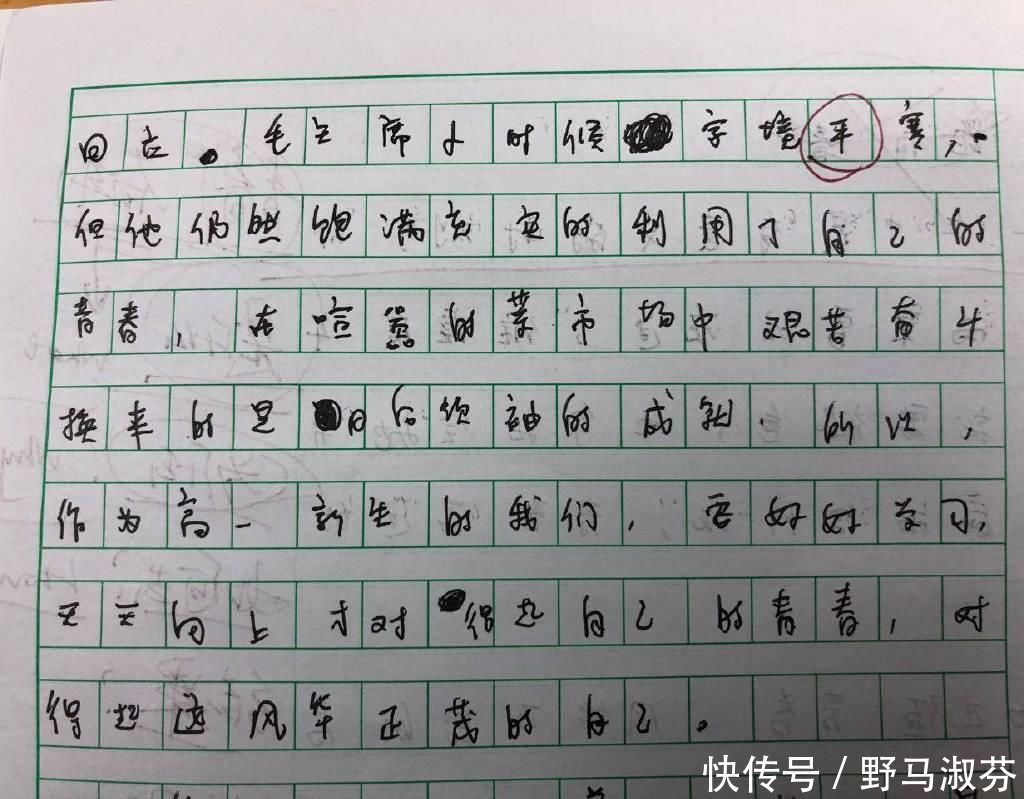 回去。毛主席小时候家境平寒，
但他仍然饱满充实的利用了自己的
青春，在喧嚣的菜市场中艰苦奋斗
换来的是日后领袖的成就.所以，
作为高一新生的我们，要好好学习，
天天向上才对得起自己的青春，对
得起这风华正茂的自己。
快传号 / 野马淑芬